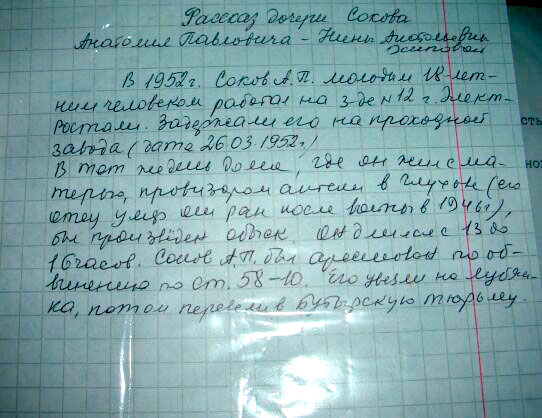 Рассказ дочери Сокова
Анатолия Павловича - Нины Анатольевны
В 1952 г. Соков А.П. молодым 18-лет-
ним человеком работал на з-де №12 г. Элект-
ростали. Задержали его на проходной
завода (дата 26.03.1952 г.)
В тот же день дома, где он жил с ма-
терью, провизором аптеки в Глухов (его
отец умер от ран после войны в 1946 г),
был произведён обыск он длился с 13 до
16 часов. Соков А.П. был арестован по об-
винению по ст. 58-10. Его увезли на Лубян-
ка, потом перевели в Бутырскую тюрьму.